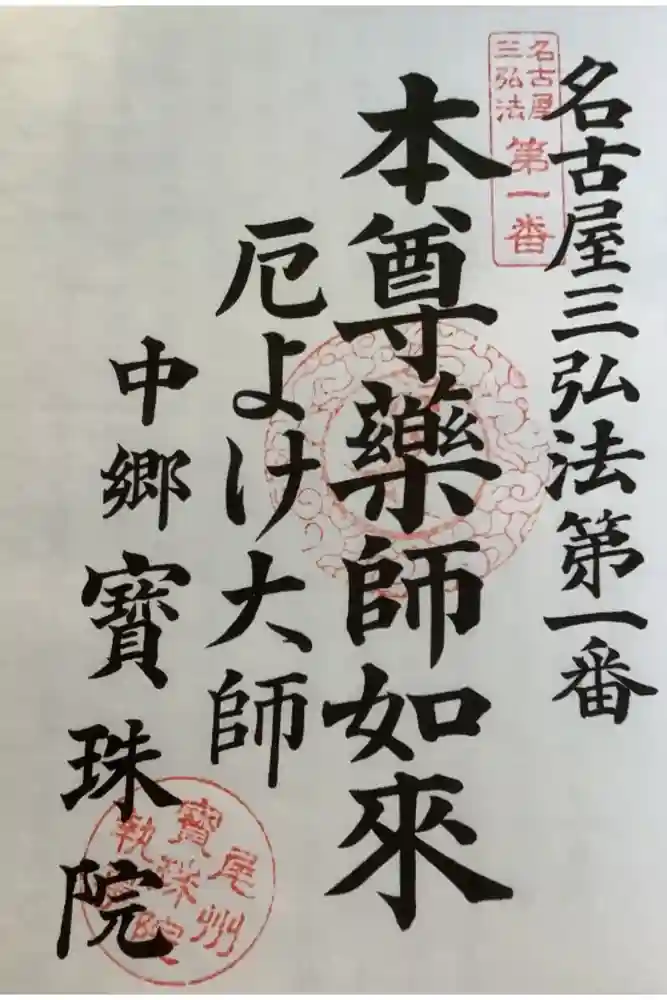 名古屋三弘法第一番
名古屋
三弘法
第一番
本尊藥師如來
厄よけ大師
中郷寳珠院
尾州
寳珠院
執